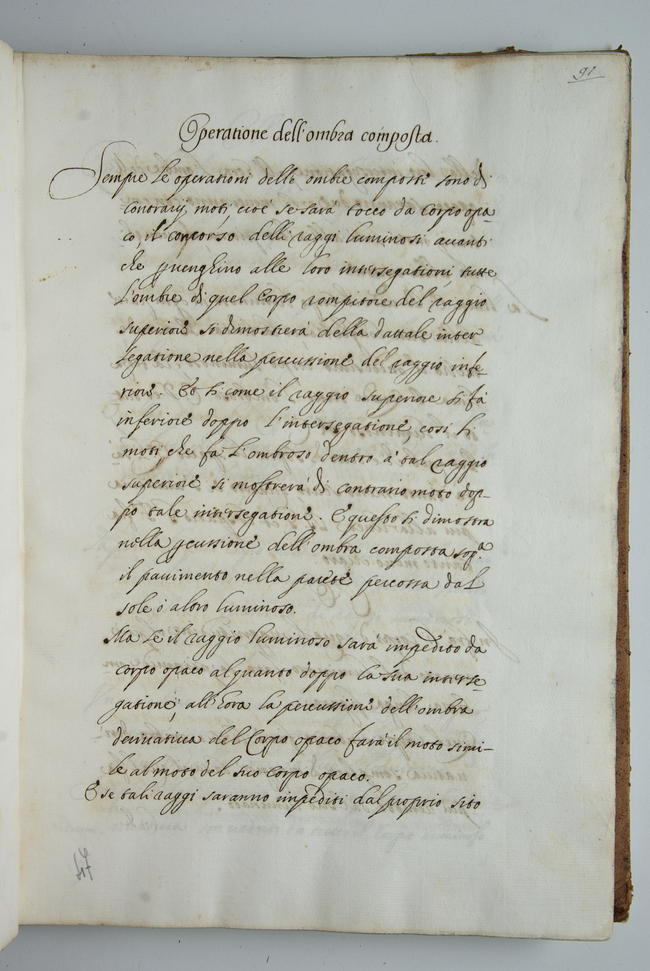 91
Operatione dell'ombra composta.
Sempre le operationi delle ombre composte sono di
contrarij moti, cioè se sarà tocco da corpo opa
co, il concorso delli raggi luminosi avanti
che pvenghino alle loro intersegationi, tutte
l'ombre di quel corpo rompitore del raggio
superiore si dimostrerà della dattale inter-
segatione nella percussione del raggio infe-
riore. Et si come il raggio superiore si fà
inferiore doppo l'intersegatione, così li
moti, che fà l'ombroso dentro à tal raggio
superiore si mostrerà di contrario moto dop-
po tale intersegatione. E questo si dimostra
nella pcussione dell'ombra composta sop.a
il pavimento nella parete percossa dal
sole ò altro luminoso.
Ma se il raggio luminoso sarà impedito da
corpo opaco alquanto doppo la sua interse-
gatione, all'hora la percussione dell'ombra
derivativa del corpo opaco farà il moto simi-
le al moto del suo corpo opaco.
E se tali raggi saranno impediti dal proprio sito